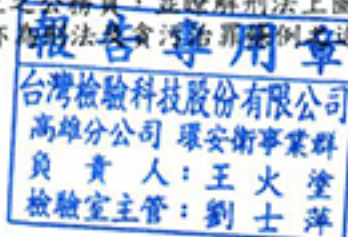 報告專用章
台灣檢驗科技股份有限公司
高雄分公司 環安衛事業群
負責人:王火塗
檢驗室主管:劉士萍